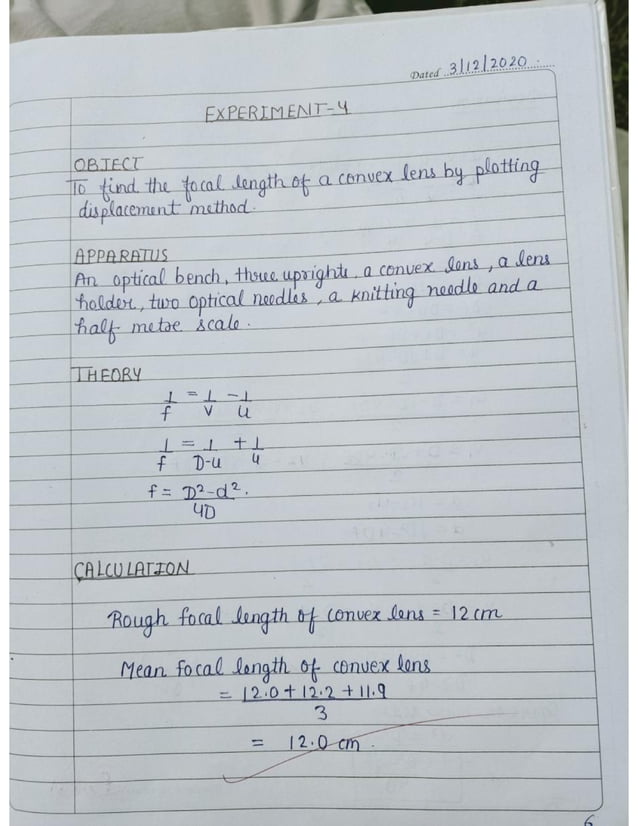 Dated 3/12/2020
EXPERIMENT-4
OBJECT
To find the focal length of a convex lens by plotting
displacement method.
APPARATUS
An optical bench, three uprights, a convex lens, a lens
holder, two optical needles, a knitting needle and a
half metre scale.
THEORY
1/f = 1/v - 1/u
1/f = 1/D-u + 1/u
f = D²-d²/4D.
CALCULATION
Rough focal length of convex lens = 12 cm
Mean focal length of convex lens
= 12.0 + 12.2 + 11.9
3
= 12.0 cm.
6